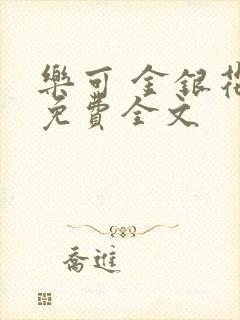 樂可 金銀花
免費全文
喬進